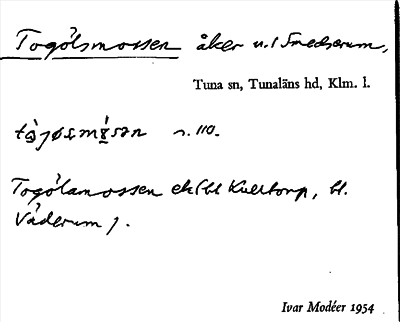 Togölsmossen åker u. / Smederum,
Tuna sn, Tunaläns hd, Klm. l.
n. 110.
Togölamossen ek (bl Kulltorp, bl.
Väderum).
Ivar Modéer 1954